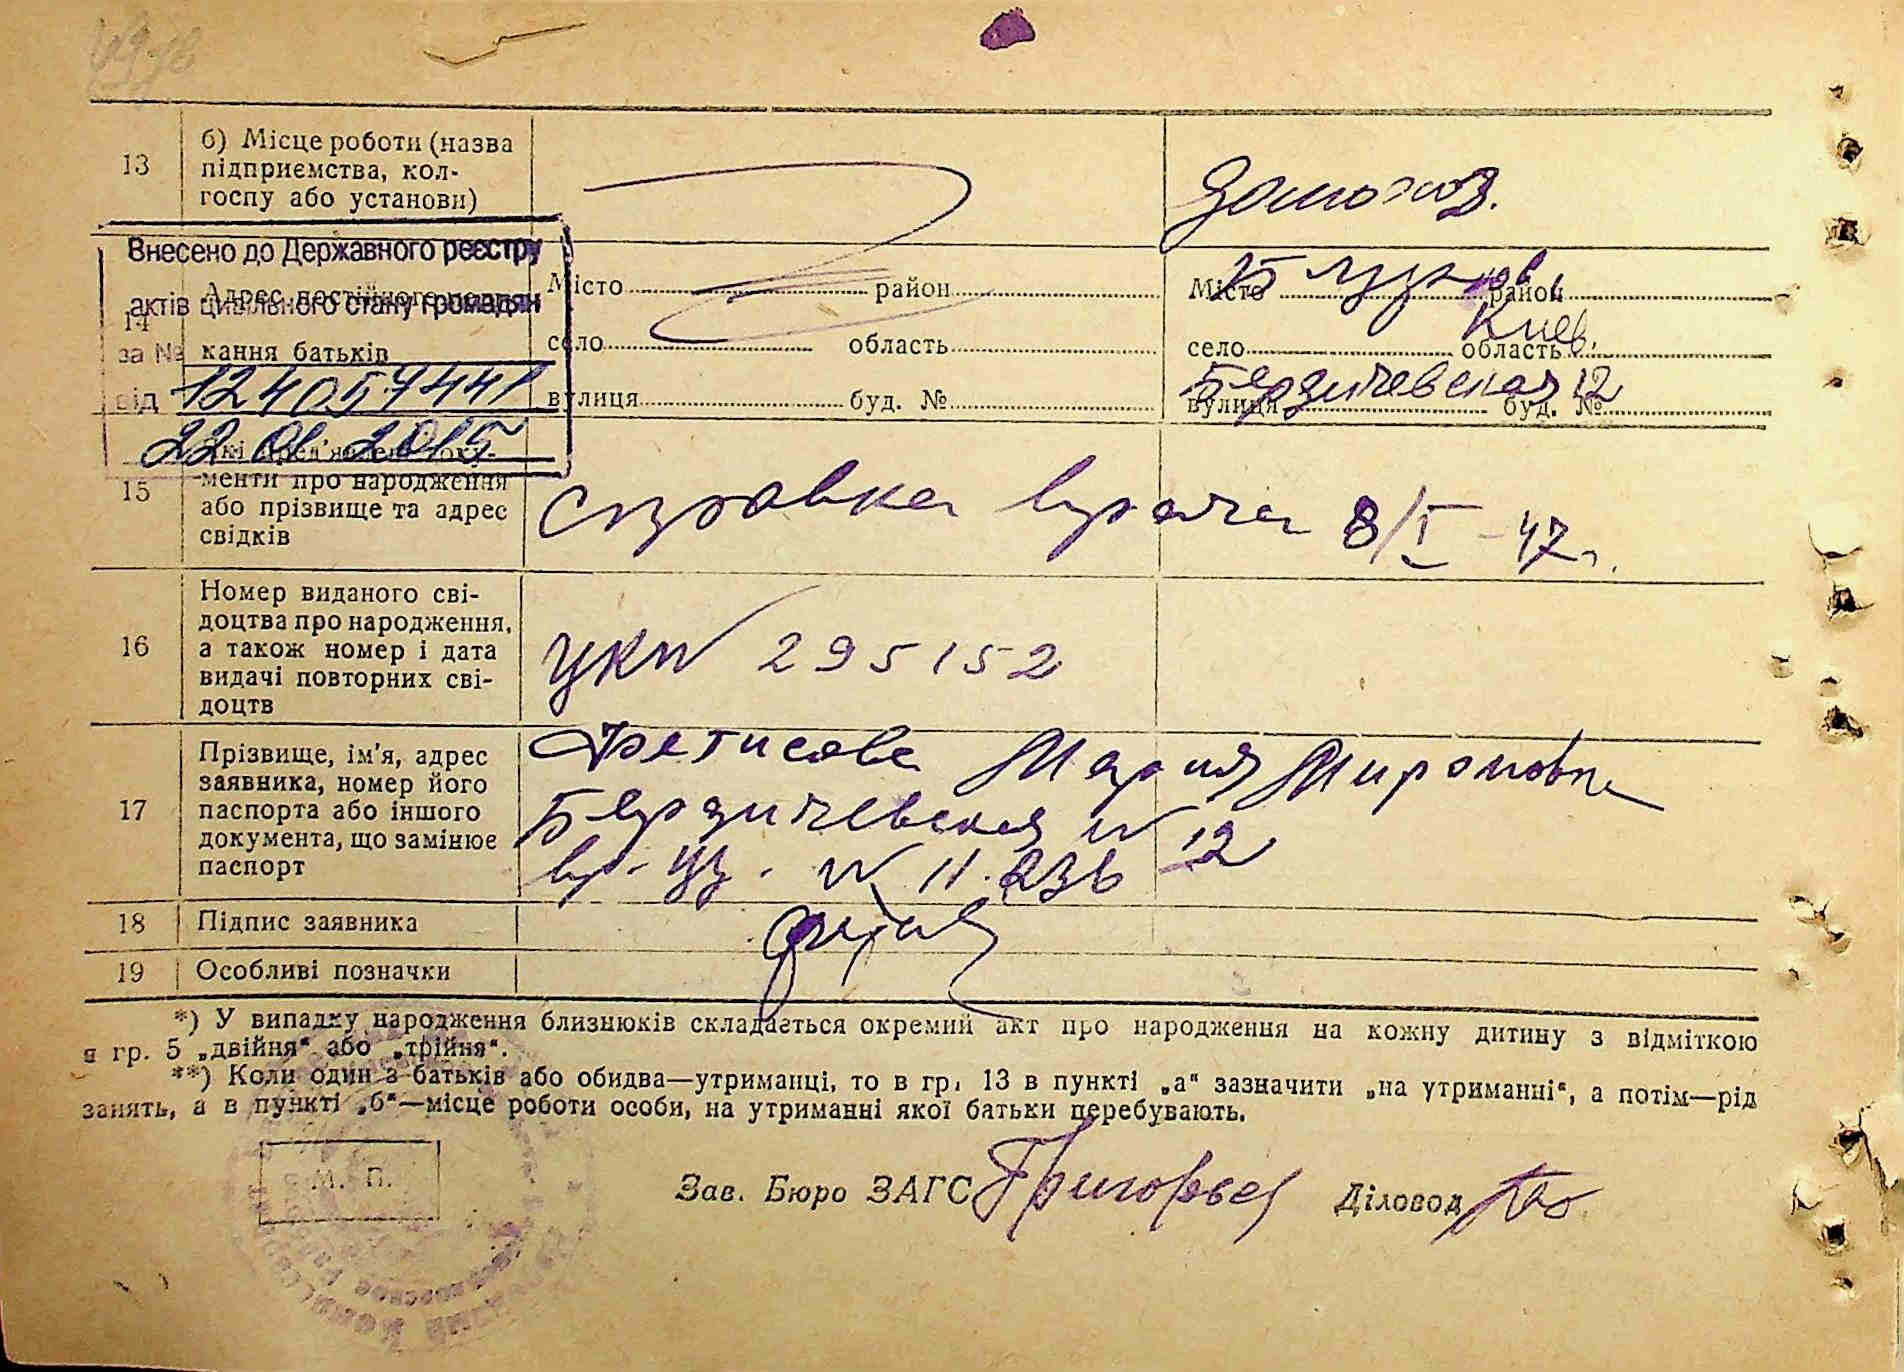 13
б) Місце роботи (назва
підприємства, кол-
госпу або установи)
Внесено до Державного реєстру
актів цивільного стану громадян
за №
124057441
від
22 01 2015
14
Адрес постійного
кання батьків
Місто район
село область
вулиця буд. №
Місто район
Киев.
село область
Бердичевская 12
вулиця буд. №
15
менти про народження
або прізвище та адрес
свідків
Справка врача 8/I - 47 г.
16
Номер виданого сві-
доцтва про народження,
а також номер і дата
видачі повторних сві-
доцтв
№ 295152
17
Прізвище, ім'я, адрес
заявника, номер його
паспорта або іншого
документа, що замінює
паспорт
Фетисова Мария Мироновна
Бердичевская № 12
№ 11.236
18
Підпис заявника
19
Особливі позначки
*) У випадку народження близнюків складається окремий акт про народження на кожну дитину з відміткою
в гр. 5 „двійня“ або „трійня“.
**) Коли один з батьків або обидва—утриманці, то в гр. 13 в пункті „а“ зазначити „на утриманні“, а потім—рід
занять, а в пункті „б“—місце роботи особи, на утриманні якої батьки перебувають.
М. П.
Зав. Бюро ЗАГС Григорьев Діловод